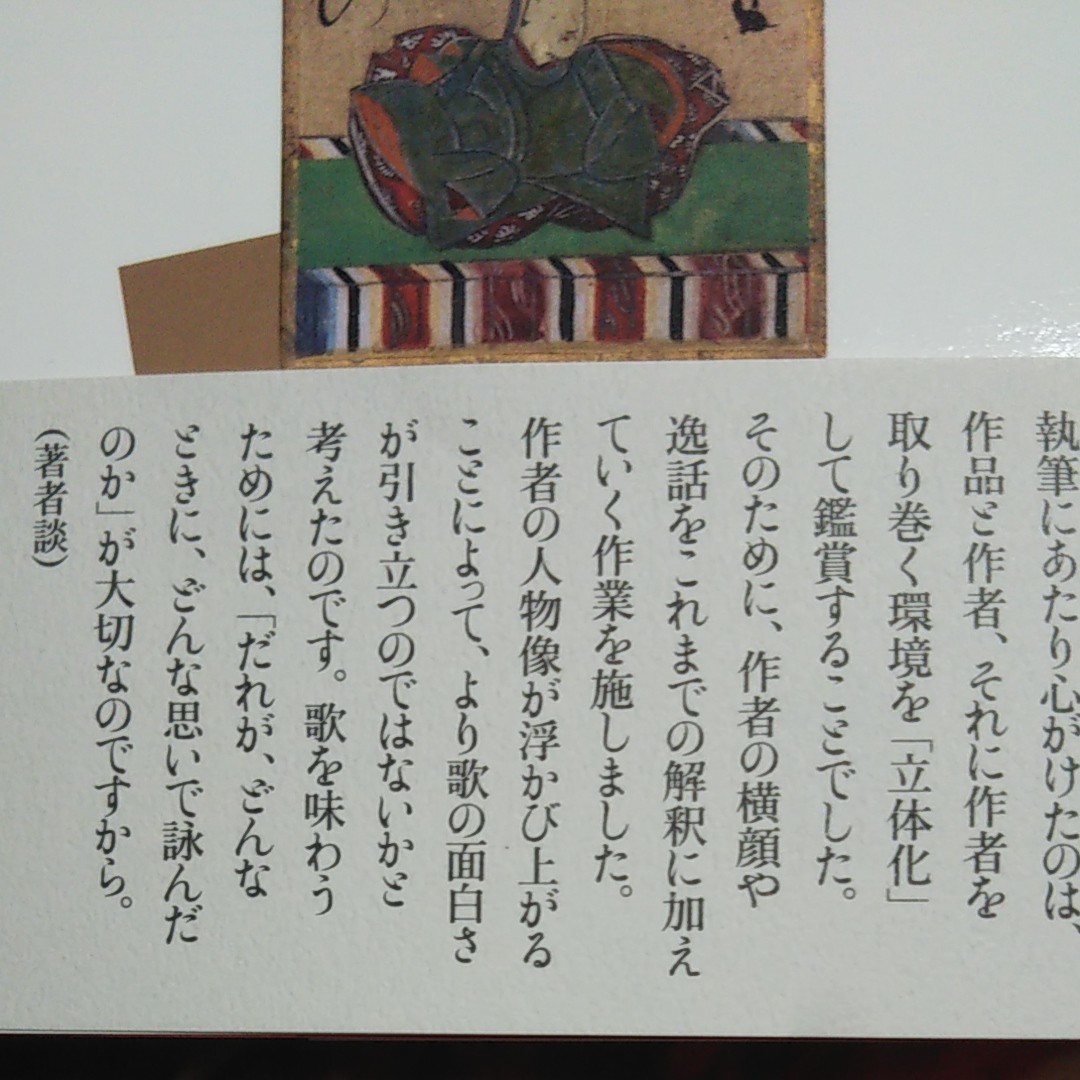 執筆にあたり心がけたのは、
作品と作者、それに作者を
取り巻く環境を「立体化」
して鑑賞することでした。
そのために、作者の横顔や
逸話をこれまでの解釈に加え
ていく作業を施しました。
作者の人物像が浮かび上がる
ことによって、より歌の面白さ
が引き立つのではないかと
考えたのです。歌を味わう
ためには、「だれが、どんな
ときに、どんな思いで詠んだ
のか」が大切なのですから。
(著者談)